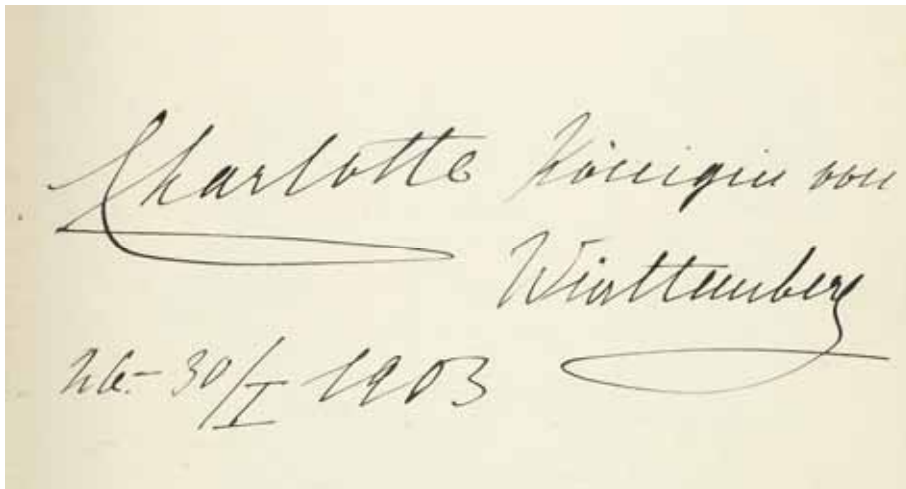 Charlotte Königin von
Württemberg
26.-30/I 1903